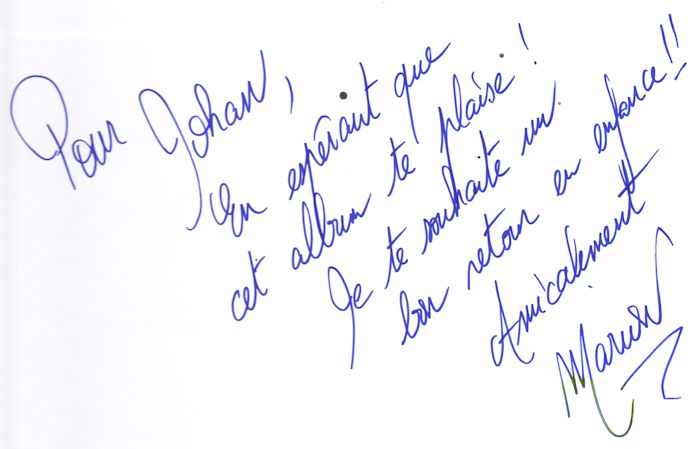 Pour Johan,
En espérant que
cet album te plaise !
Je te souhaite un
bon retour en enfance !!
Amicalement
Marion